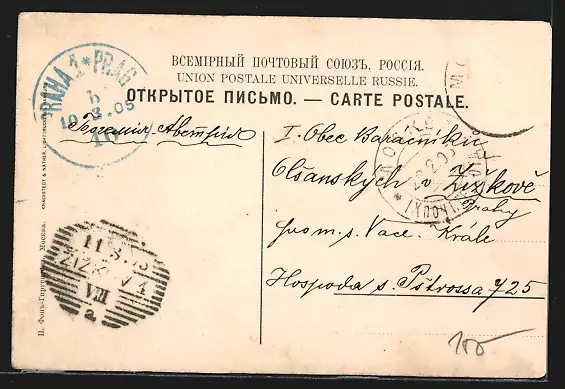 ВСЕМІРНЫЙ ПОЧТОВЫЙ СОЮЗЪ. РОССІЯ.
UNION POSTALE UNIVERSELLE RUSSIE.
ОТКРЫТОЕ ПИСЬМО. — CARTE POSTALE.
PRAHA 1 * PRAG
b
10.3.05
Богемія Австрія
I. Obec Baračníků
Olšanských v Žižkově
Prahy
pro m. s. Václ. Krále
Hospoda s. Pštrossa 725
МОСКВА
11.3.05
ŽIŽKOV 1
VIII
a
П. Фонъ-Гиргенсонъ, Москва.
100